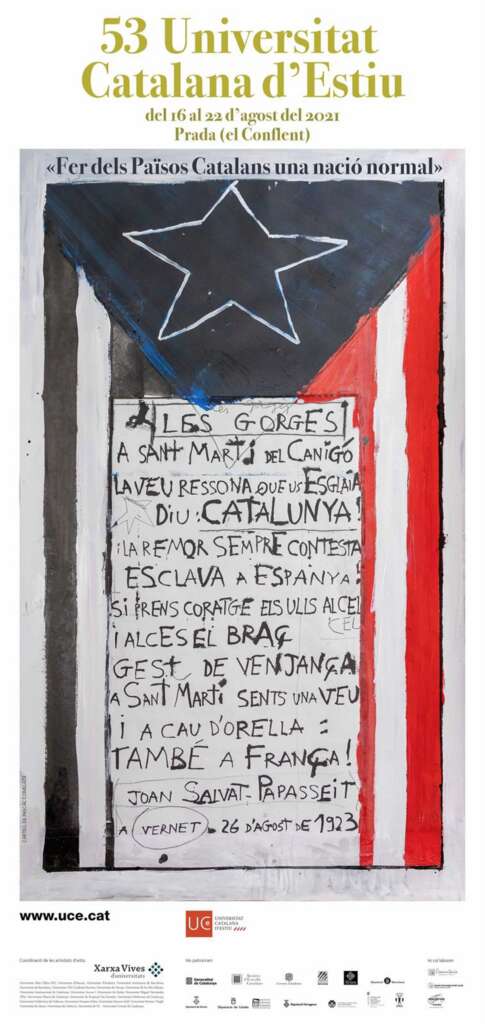 53 Universitat
Catalana d'Estiu
del 16 al 22 d'agost del 2021
Prada (el Conflent)
«Fer dels Països Catalans una nació normal»
A LES GORGES
A SANT MARTÍ DEL CANIGÓ
LA VEU RESSONA QUE US ESGLAIA
DIU: CATALUNYA!
I LA REMOR SEMPRE CONTESTA
ESCLAVA A ESPANYA!
SI PRENS CORATGE ELS ULLS AL CEL
CEL
I ALCES EL BRAÇ
GEST DE VENJANÇA
A SANT MARTÍ SENTS UNA VEU
I A CAU D'ORELLA:
TAMBÉ A FRANÇA!
JOAN SALVAT-PAPASSEIT
A VERNET - 26 D'AGOST DE 1923
www.uce.cat
UCE UNIVERSITAT
CATALANA
D'ESTIU
Xarxa Vives
d'universitats
Hi patrocinen:
Hi col·laboren:
Generalitat
de Catalunya